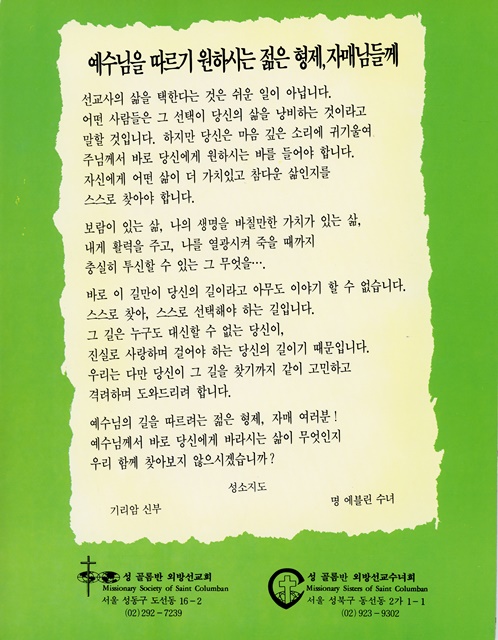 예수님을 따르기 원하시는 젊은 형제,자매님들께
선교사의 삶을 택한다는 것은 쉬운 일이 아닙니다.
어떤 사람들은 그 선택이 당신의 삶을 낭비하는 것이라고
말할 것입니다. 하지만 당신은 마음 깊은 소리에 귀기울여
주님께서 바로 당신에게 원하시는 바를 들어야 합니다.
자신에게 어떤 삶이 더 가치있고 참다운 삶인지를
스스로 찾아야 합니다.
보람이 있는 삶, 나의 생명을 바칠만한 가치가 있는 삶,
내게 활력을 주고, 나를 열광시켜 죽을 때까지
충실히 투신할 수 있는 그 무엇을….
바로 이 길만이 당신의 길이라고 아무도 이야기 할 수 없습니다.
스스로 찾아, 스스로 선택해야 하는 길입니다.
그 길은 누구도 대신할 수 없는 당신이,
진실로 사랑하며 걸어야 하는 당신의 길이기 때문입니다.
우리는 다만 당신이 그 길을 찾기까지 같이 고민하고
격려하며 도와드리려 합니다.
예수님의 길을 따르려는 젊은 형제, 자매 여러분!
예수님께서 바로 당신에게 바라시는 삶이 무엇인지
우리 함께 찾아보지 않으시겠습니까?
성소지도
기리암 신부 명 에블린 수녀
성 골롬반 외방선교회
Missionary Society of Saint Columban
서울 성동구 도선동 16-2
(02)292-7239
성 골롬반 외방선교수녀회
Missionary Sisters of Saint Columban
서울 성북구 동선동 2가 1-1
(02)923-9302